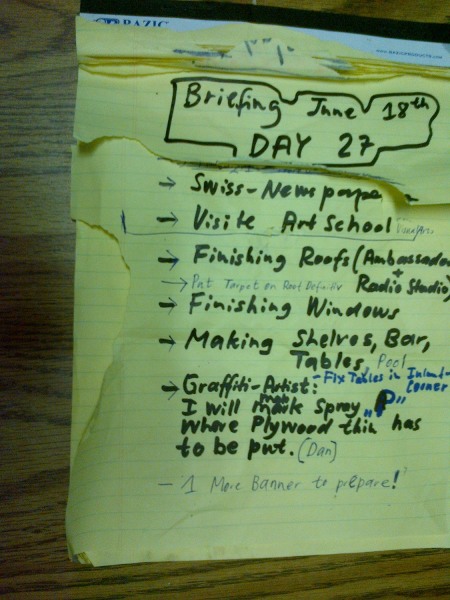 BAZIC
Briefing June 18th
DAY 27
→ Swiss-Newspape
→ Visite Art School Visual Arts
→ Finishing Roofs (Ambassado
+
→ Put Target on Roof Definitiv Radio Studio)
→ Finishing Windows
→ Making Shelves, Bar,
Tables, Pool
- Fix Tables in Inland-
Corner
→ Graffiti-Artist:
I will mark spray "P"
where Plywood thin has
to be put. (Dan)
- 1 More Banner to prepare!